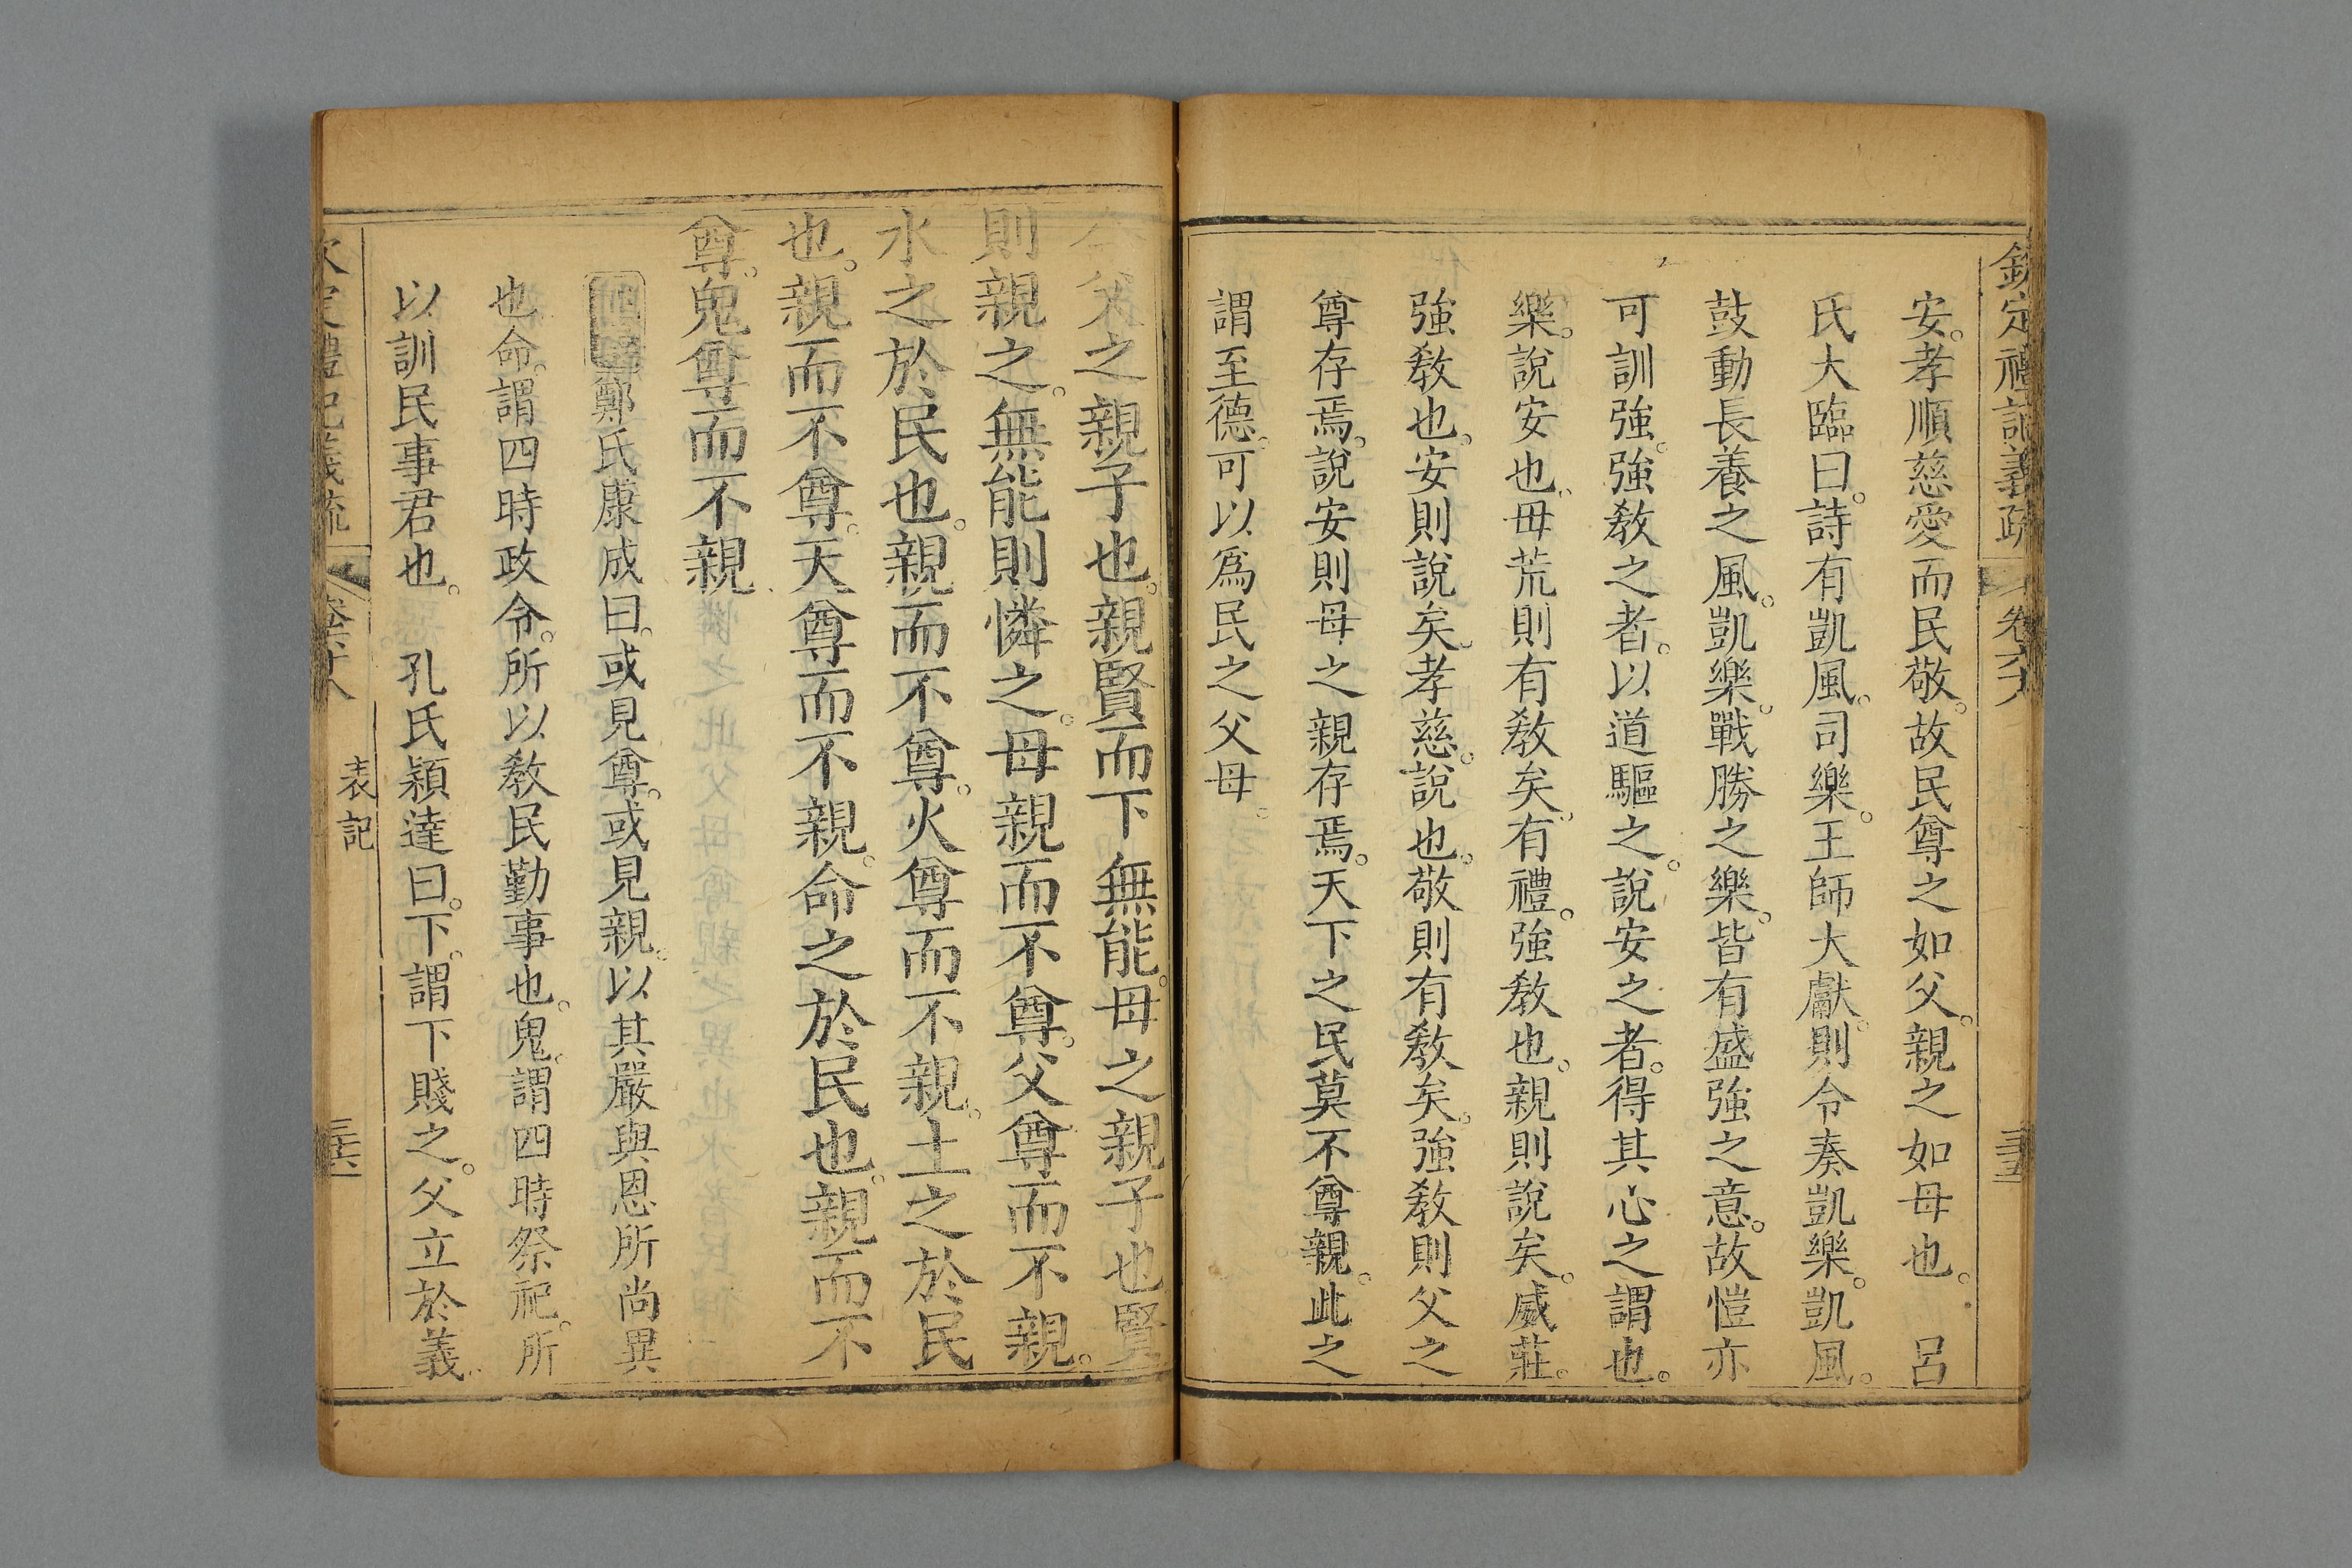 欽定禮記義疏 卷六十八 三十五
安。孝順慈愛而民敬。故民尊之如父。親之如母也。 呂
氏大臨曰。詩有凱風。司樂。王師大獻。則令奏凱樂。凱風。
鼓動長養之風。凱樂。戰勝之樂。皆有盛強之意。故愷亦
可訓強。強教之者。以道驅之。說安之者。得其心之謂也。
樂。說安也。毋荒則有教矣。有禮。強教也。親則說矣。威莊。
強教也。安則說矣。孝慈。說也。敬則有教矣。強教則父之
尊存焉。說安則母之親存焉。天下之民莫不尊親。此之
謂至德。可以爲民之父母。
今父之親子也。親賢而下無能。母之親子也賢
則親之。無能則憐之。母親而不尊。父尊而不親。
水之於民也。親而不尊。火尊而不親。土之於民
也。親而不尊。天尊而不親。命之於民也。親而不
尊。鬼尊而不親
鄭氏康成曰。或見尊。或見親。以其嚴與恩所尚異
也命。謂四時政令。所以教民勤事也。鬼。謂四時祭祀。所
以訓民事君也。 孔氏穎達曰。下。謂下賤之。父立於義
欽定禮記義疏 卷六十八 表記 三十六